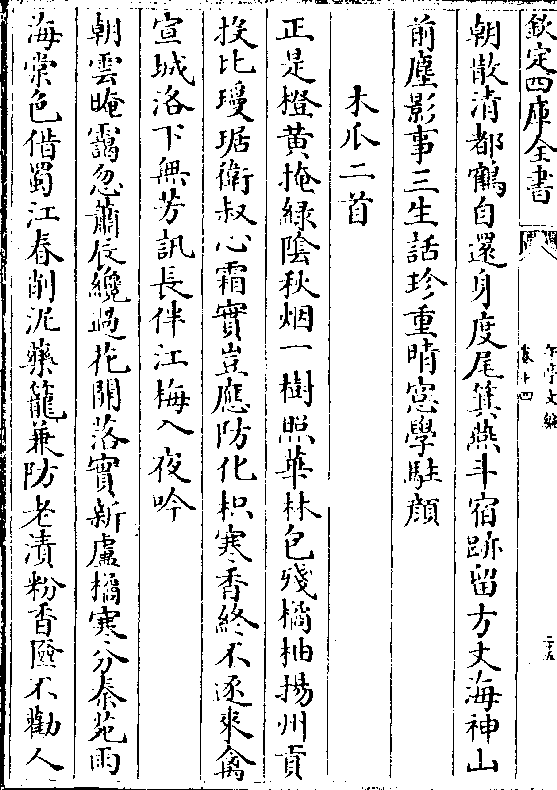 欽定四庫全書
午亭文編
卷十四
朝散清都鶴自還身度尾箕燕斗宿跡留方丈海神山
前塵影事三生話珍重晴窓學駐顔
木瓜二首
正是橙黄掩緑陰秋烟一樹照華林包殘橘柚揚州貢
投比瓊琚衛叔心霜實豈應防化枳寒香終不逐來禽
宣城洛下無芳訊長伴江梅入夜吟
朝雲晻靄忽蕭辰纔過花關落實新盧橘寒分秦苑雨
海棠色借蜀江春削泥藥籠兼防老漬粉香匳不勸人